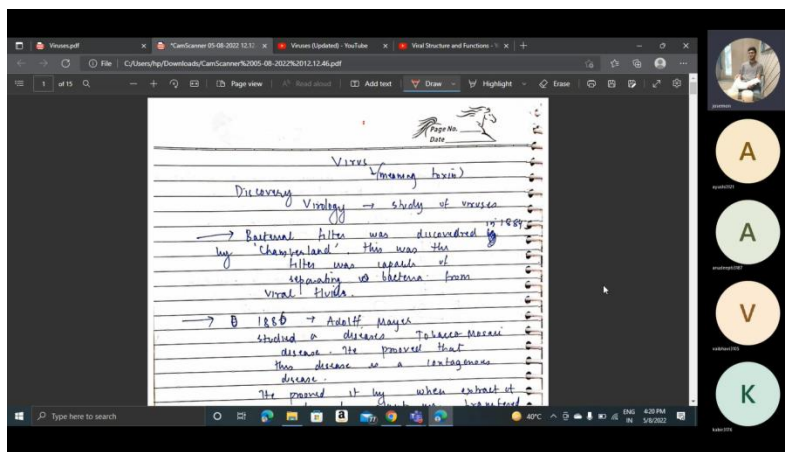 Viruses.pdf
*CamScanner 05-08-2022 12.12
Viruses (Updated) - YouTube
Viral Structure and Functions - Y
File
C:/Users/hp/Downloads/CamScanner%2005-08-2022%2012.12.46.pdf
1 of 15
Page view
Read aloud
Add text
Draw
Highlight
Erase
Page No.
Date
Virus
(meaning toxin)
Discovery
Virology → study of viruses
→ Bacterial filter was discovedred in 1884
by 'Chamberland'. this was the
filter was capable of
separating bacteria from
viral fluids.
→ 1886 → Adolff Mayer
studied a diseases Tobacco Mosaic
disease. He prooved that
this disease is a contagenous
disease.
He prooved it by when extract of
transfered
A
A
V
K
Type here to search
40°C
ENG
IN
4:20 PM
5/8/2022